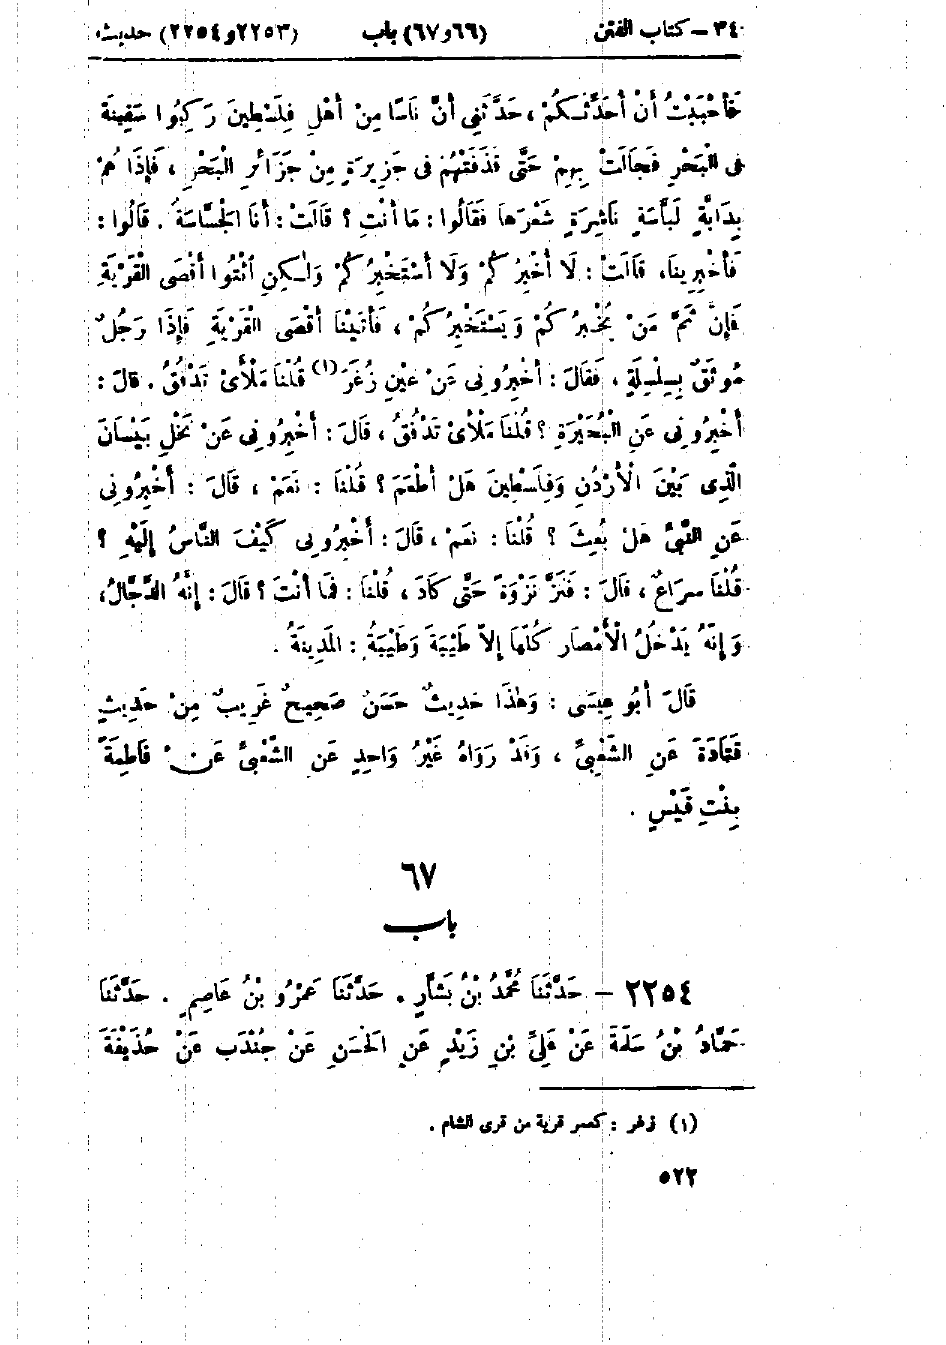 ٣٤ – كتاب الفتن (٦٦و٦٧) باب (٢٢٥٣و٢٢٥٤) حديث
فَأَحْبَبْتُ أَنْ أُحَدِّثَكُمْ ، حَدَّثَنِي أَنَّ نَاسًا مِنْ أَهْلِ فِلَسْطِينَ رَكِبُوا سَفِينَةً
فِى الْبَحْرِ فَجَالَتْ بِهِمْ حَتَّى قَذَفَتْهُمْ فِى جَزِيرَةٍ مِنْ جَزَائِرِ الْبَحْرِ ، فَإِذَا هُمْ
بِدَابَّةٍ لَبَّاسَةٍ نَاشِرَةٍ شَعْرَهَا فَقَالُوا : مَا أَنْتِ ؟ قَالَتْ : أَنَا الْجَسَّاسَةُ . قَالُوا :
فَأَخْبِرِينَا، قَالَتْ : لَا أُخْبِرُ كُمْ وَلَا أَسْتَخْبِرُ كُمْ وَلٰكِنِ ائْتُوا أَقْصَى الْقَرْيَةِ
فَإِنَّ ثَمَّ مَنْ يُخْبِرُ كُمْ وَيَسْتَخْبِرُ كُمْ ، فَأَتَيْنَا أَقْصَى الْقَرْيَةِ فَإِذَا رَجُلٌ
مُوثَقٌ بِسِلْسِلَةٍ ، فَقَالَ : أَخْبِرُونِى عَنْ عَيْنِ زُغَرَ (١) قُلْنَا مَلْأَىْ تَدْفُقُ . قالَ :
أَخْبِرُونِى عَنِ الْبُحَيْرَةِ ؟ قُلْنَا مَلْأَىْ تَدْفُقُ ، قَالَ : أَخْبِرُونِى عَنْ نَخْلِ بَيْسَانَ
الَّذِى بَيْنَ الْأُرْدُنِ وَفِلَسْطِينَ هَلْ أَطْعَمَ ؟ قُلْنَا : نَعَمْ ، قَالَ : أَخْبِرُونِى
عَنِ النَّبِيِّ هَلْ بُعِثَ ؟ قُلْنَا : نَعَمْ ، قَالَ : أَخْبِرُونِى كَيْفَ النَّاسُ إِلَيْهِ ؟
قُلْنَا سِرَاعٌ ، قَالَ : فَنَزَّ نَزْوَةً حَتَّى كَادَ ، قُلْنَا : فَمَا أَنْتَ ؟ قَالَ : إِنَّهُ الدَّجَّالُ،
وَإِنَّهُ يَدْخُلُ الْأَمْصَارَ كُلَّهَا إِلاَّ طَيْبَةَ وَطَيْبَةُ : الْمَدِينَةُ .
قَالَ أَبُو عِيسَى : وَهٰذَا حَدِيثٌ حَسَنٌ صَحِيحٌ غَرِيبٌ مِنْ حَدِيثِ
قَتَادَةَ عَنِ الشَّعْبِيِّ ، وَقَدْ رَوَاهُ غَيْرُ وَاحِدٍ عَنِ الشَّعْبِيِّ عَنْ فَاطِمَةَ
بِنْتِ قَيْسٍ .
٦٧
باب
٢٢٥٤ – حَدَّثَنَا مُحَمَّدُ بْنُ بَشَّارٍ . حَدَّثَنَا عَمْرُو بْنُ عَاصِمٍ . حَدَّثَنَا
حَمَّادُ بْنُ سَلَمَةَ عَنْ عَلِيِّ بْنِ زَيْدٍ عَنِ الْحَسَنِ عَنْ جُنْدَبٍ عَنْ حُذَيْفَةَ
(١) زغر : كصر قرية من قرى الشام .
٥٢٢